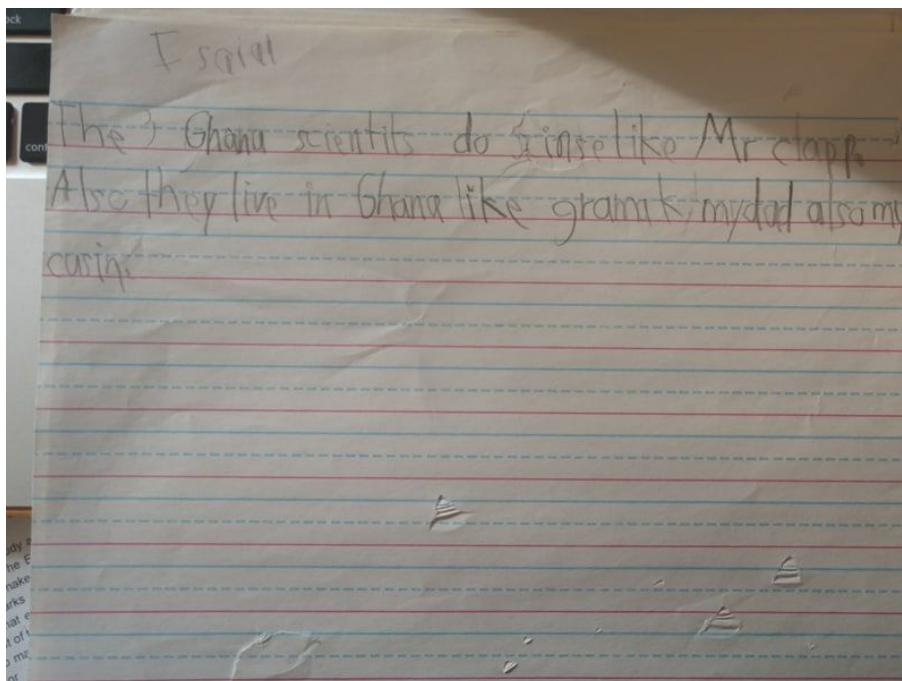 The 3 Ghana scientits do sinse like Mr clapp.
Also they live in Ghana like gramak mydad also my
cusin.